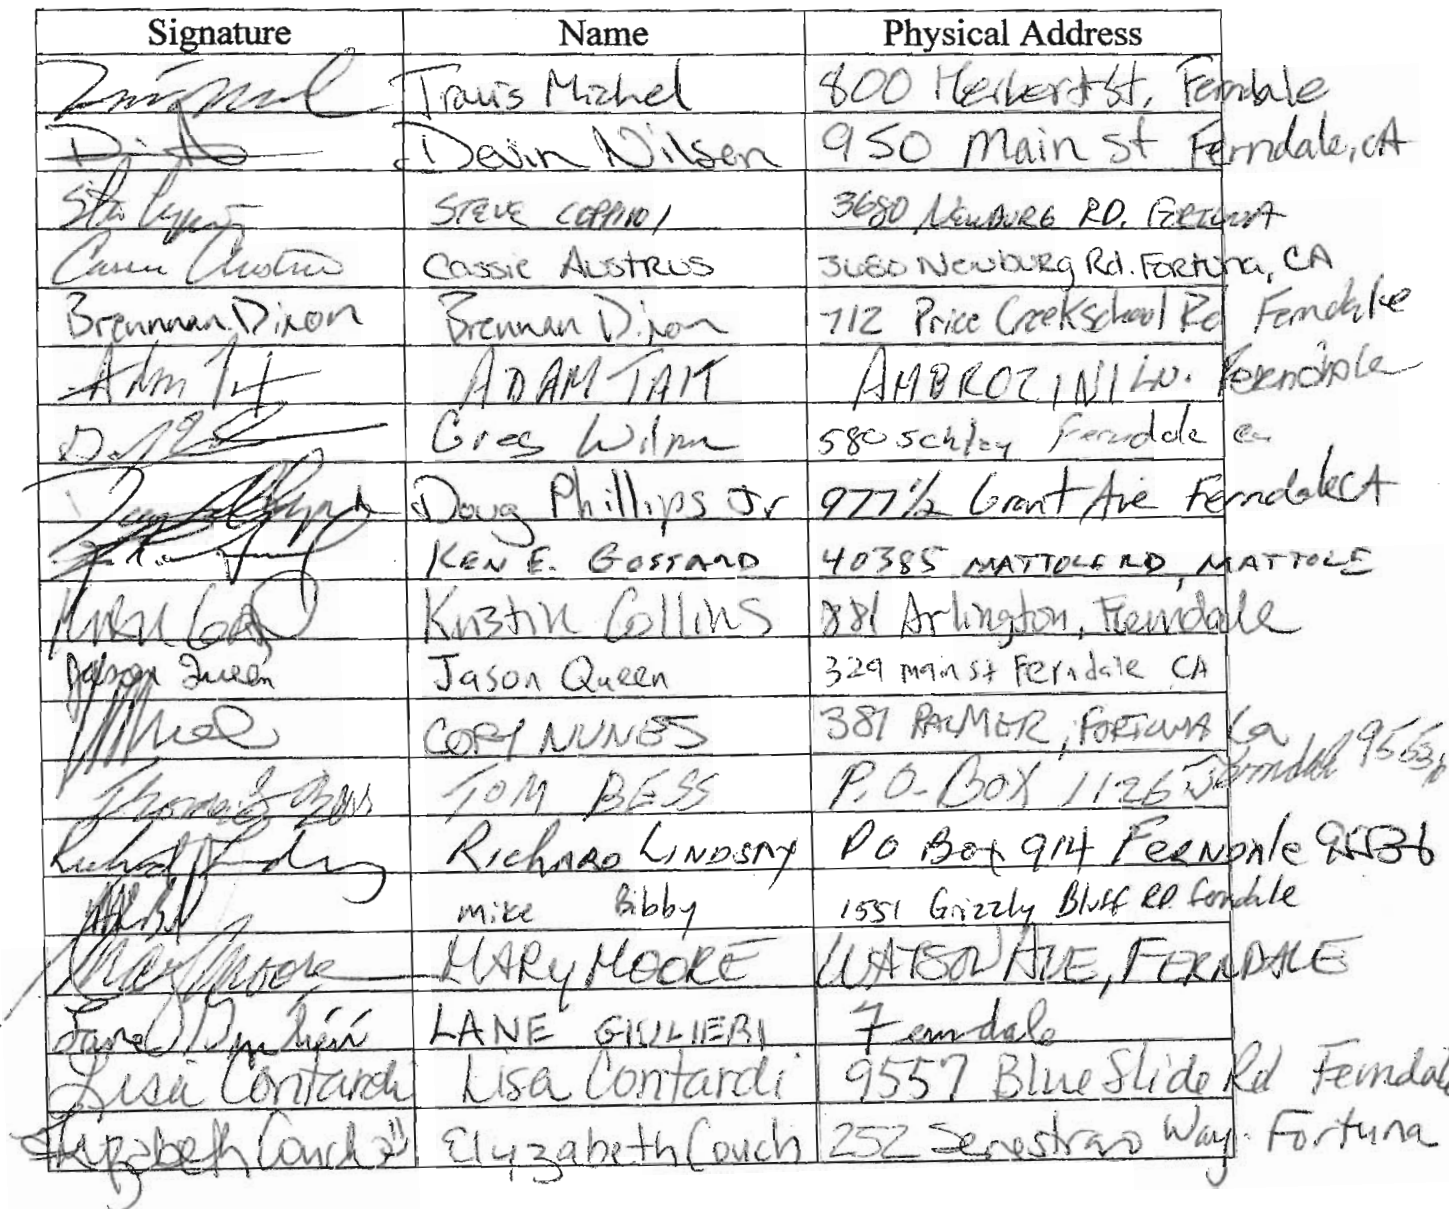 Signature Name Physical Address
Travis Michel 800 Herbert St, Ferndale
Devin Nilsen 950 Main St Ferndale, CA
STEVE COPPINI 3680 NEWBURG RD. FORTUNA
Cassie AUSTRUS 3680 Newburg Rd. Fortuna, CA
Brennan Dixon Brennan Dixon 712 Price Creek School Rd Ferndale
Adam Tait ADAM TAIT AMBROZINI LN. Ferndale
Greg 580 Schley Ferndale Ca
Doug Phillips Jr 977 1/2 Grant Ave Ferndale CA
KEN E. GOSSARD 40385 MATTOLE RD, MATTOLE
Kristin Collins 881 Arlington, Ferndale
Jason Queen Jason Queen 329 Main St Ferndale CA
CORY NUNES 381 PALMER, FORTUNA Ca
TOM BESS P.O. BOX 1126 Ferndale 95536
Richard Lindsay PO Box 914 Ferndale 95536
Mike Bibby 1551 Grizzly Bluff RD Ferndale
Mary Moore MARY MOORE WATSON AVE, FERNDALE
LANE GIULIERI Ferndale
Lisa Contardi Lisa Contardi 9557 Blue Slide Rd Ferndale
Elyzabeth Couch Elyzabeth Couch 252 Way. Fortuna